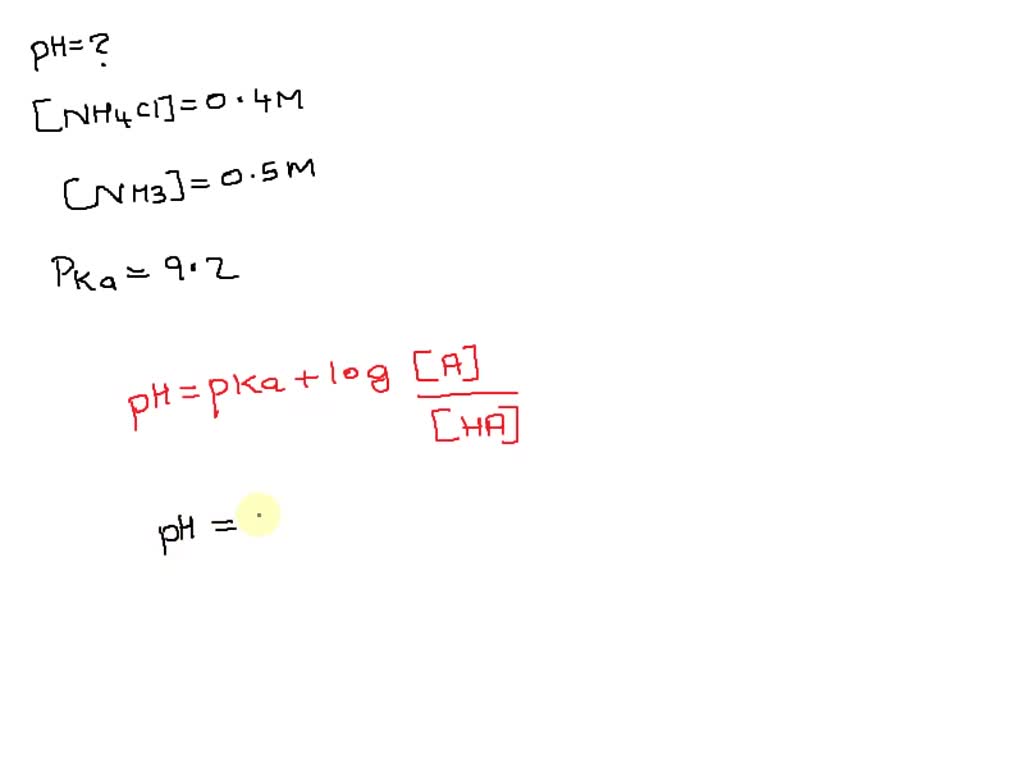 pH=?
[NH4Cl]=0.4M
[NH3]=0.5M
PKa=9.2
pH=pKa+log [A]
[HA]
pH =